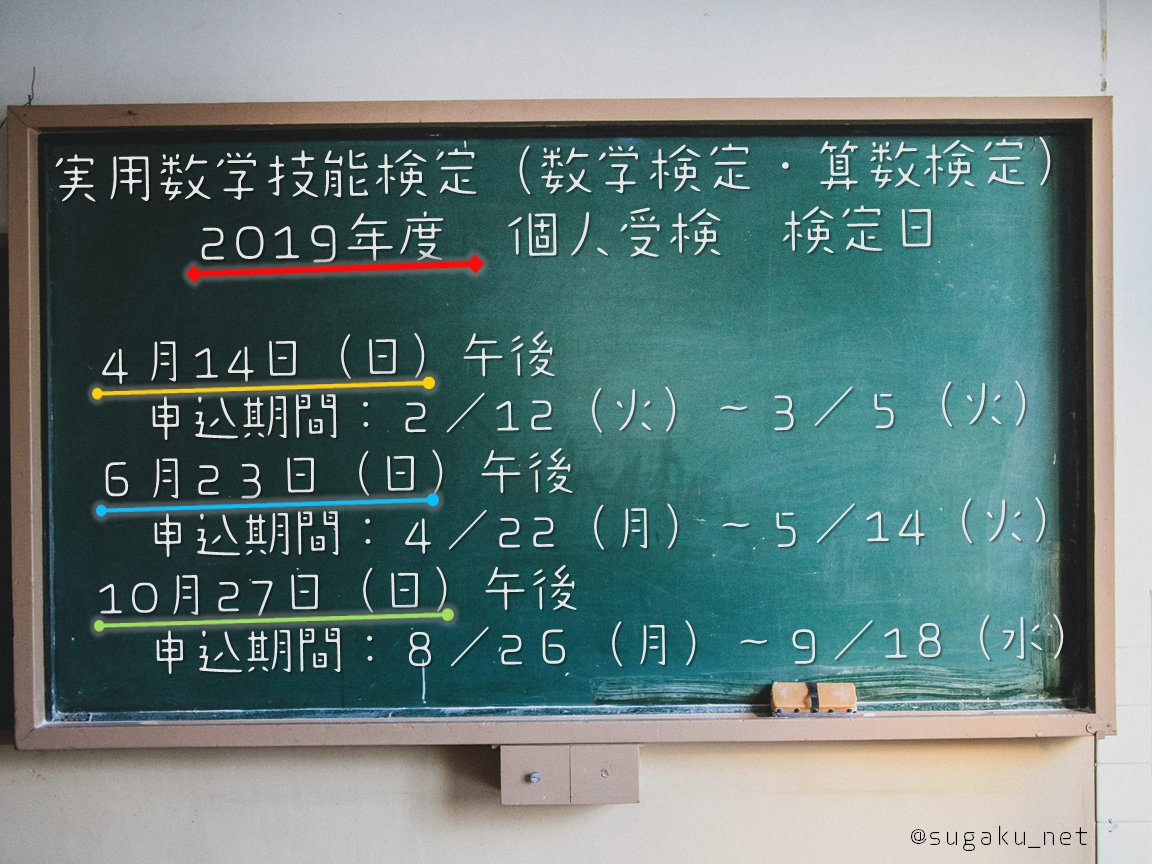 実用数学技能検定（数学検定・算数検定）
2019年度　個人受検　検定日
4月14日（日）午後
申込期間：2／12（火）～3／5（火）
6月23日（日）午後
申込期間：4／22（月）～5／14（火）
10月27日（日）午後
申込期間：8／26（月）～9／18（水）
@sugaku_net